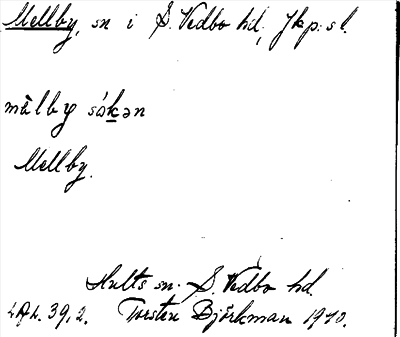 Mellby, sn i S. Vedbo hd, Jkp:s l.
mälby såkən
Mellby.
Hults sn. S. Vedbo hd.
39,2. Torsten Björkman 1910.